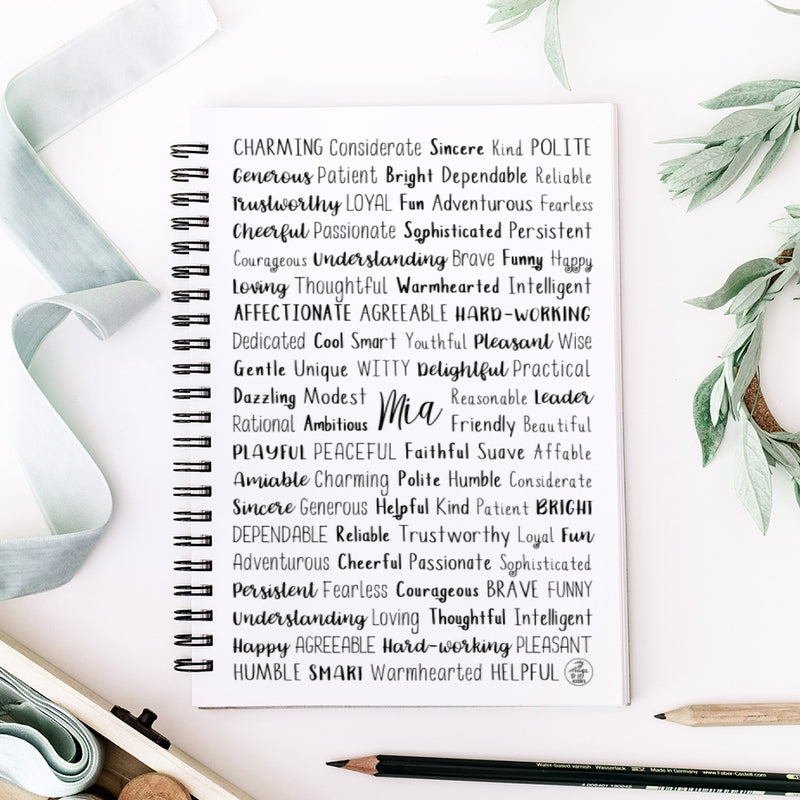 CHARMING Considerate Sincere Kind POLITE
Generous Patient Bright Dependable Reliable
Trustworthy LOYAL Fun Adventurous Fearless
Cheerful Passionate Sophisticated Persistent
Courageous Understanding Brave Funny Happy
Loving Thoughtful Warmhearted Intelligent
AFFECTIONATE AGREEABLE HARD-WORKING
Dedicated Cool Smart Youthful Pleasant Wise
Gentle Unique WITTY Delightful Practical
Dazzling Modest Reasonable Leader
Mia
Rational Ambitious Friendly Beautiful
PLAYFUL PEACEFUL Faithful Suave Affable
Amiable Charming Polite Humble Considerate
Sincere Generous Helpful Kind Patient BRIGHT
DEPENDABLE Reliable Trustworthy Loyal Fun
Adventurous Cheerful Passionate Sophisticated
Persistent Fearless Courageous BRAVE FUNNY
Understanding Loving Thoughtful Intelligent
Happy AGREEABLE Hard-working PLEASANT
HUMBLE SMART Warmhearted HELPFUL
Water-based varnish Wasserlack Made in Germany www.Faber-Castell.com